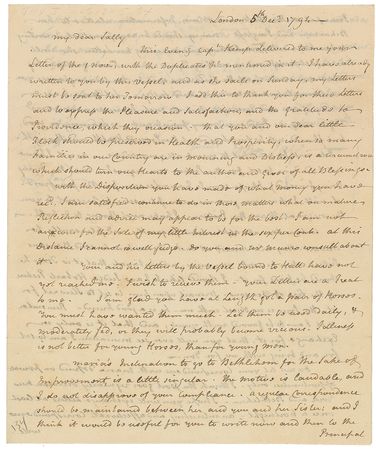 London 5th Decr. 1794
My dear Sally
This Eveng. Capt. Kemp delivered to me your
Letter of the 7 Novr. with the Duplicates &c mentioned in it. I have already
written to you by this Vessel and as she sails on Sunday, my Letters
must be sent to her Tomorrow. I add this to thank you for these Letters
and to express the Pleasure and Satisfaction, and the Gratitude to
Providence, which they occasion. That you and our dear little
Flock should be preserved in Health and Prosperity, when so many
Families in our Country are in Mourning and Distress, is a circumstance
which should turn our Hearts to the author and Giver of all Blessings
with the Disposition you have made of what money you have
recd. I am satisfied. continue to do in those matters what on mature
Reflection and advice may appear to be for the best. I am not
anxious for the Sale of my little Interest in the six per Cents. at this
Distance I cannot so well judge. do you and Mr Munro consult about
it.
Your and his Letters by the Vessel bound to Hull have not
yet reached me. I wish to recieve them. your Letters are a Treat
to me. I am glad you have at Length got a Pair of Horses.
You must have wanted them much. Let them be used daily, &
moderately fed, or they will probably become vicious. Idleness
is not better for young Horses, than for young men.
Maria's Inclination to go to Bethlehem for the Sake of
Improvement is a little singular. The motive is laudable, and
I do not disapprove of your compliance. a regular Correspondence
should be maintained between her and you and her Sister, and I
think it would be useful for you to write now and then to the
Principal